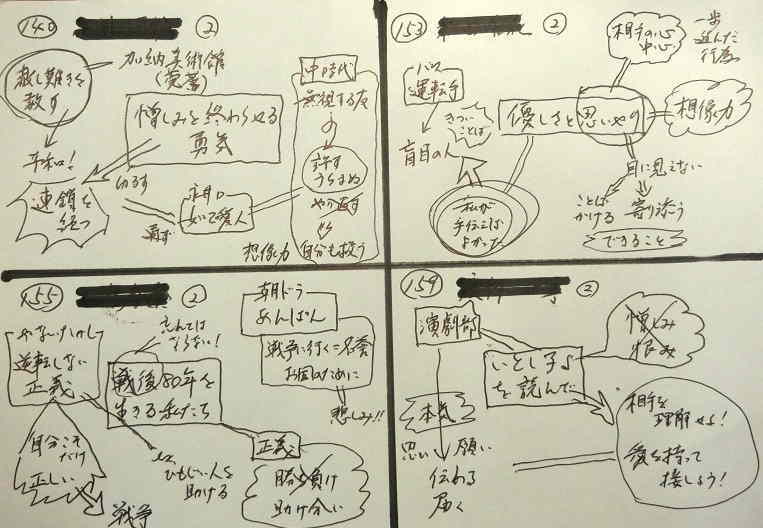 140
②
赦し難きを
赦す
加納美術館
憎しみを終わらせる
勇気
平和!
連鎖を
絶つ
中時代
無視する友
の
許す
うらまぬ
やり返す
自分も救う
想像力
153
②
バス
運転手
盲目の人
きつい
ことば
優しさと思いやり
相手の心
中心
一歩
進んだ
行為
想像力
私が
手伝えば
よかった
目に見えない
ことば
かける
寄り添う
できること
155
②
やなせたかし
逆転しない
正義
忘れては
ならない!
戦後80年を
生きる私たち
自分こそ
だけ
正しい
戦争
ひもじい人を
助ける
朝ドラ
あんぱん
戦争に行く=名誉
お国のために
悲しみ!!
正義
勝ち負け
助け合い
159
②
演劇部
いとし子よ
を読んで
憎しみ
恨み
本気
思い 願い
伝わる
届く
相手を
理解せよ!
愛を持って
接しよう!